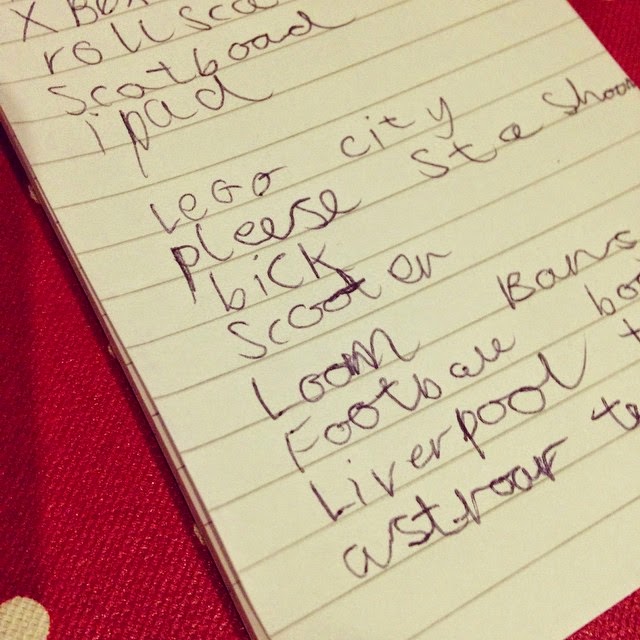 XBox
rollsca
scatboad
ipad
Lego city
please stashon
bick
scooter
Loom Bans
Footbale bo
Liverpool t
astroar t